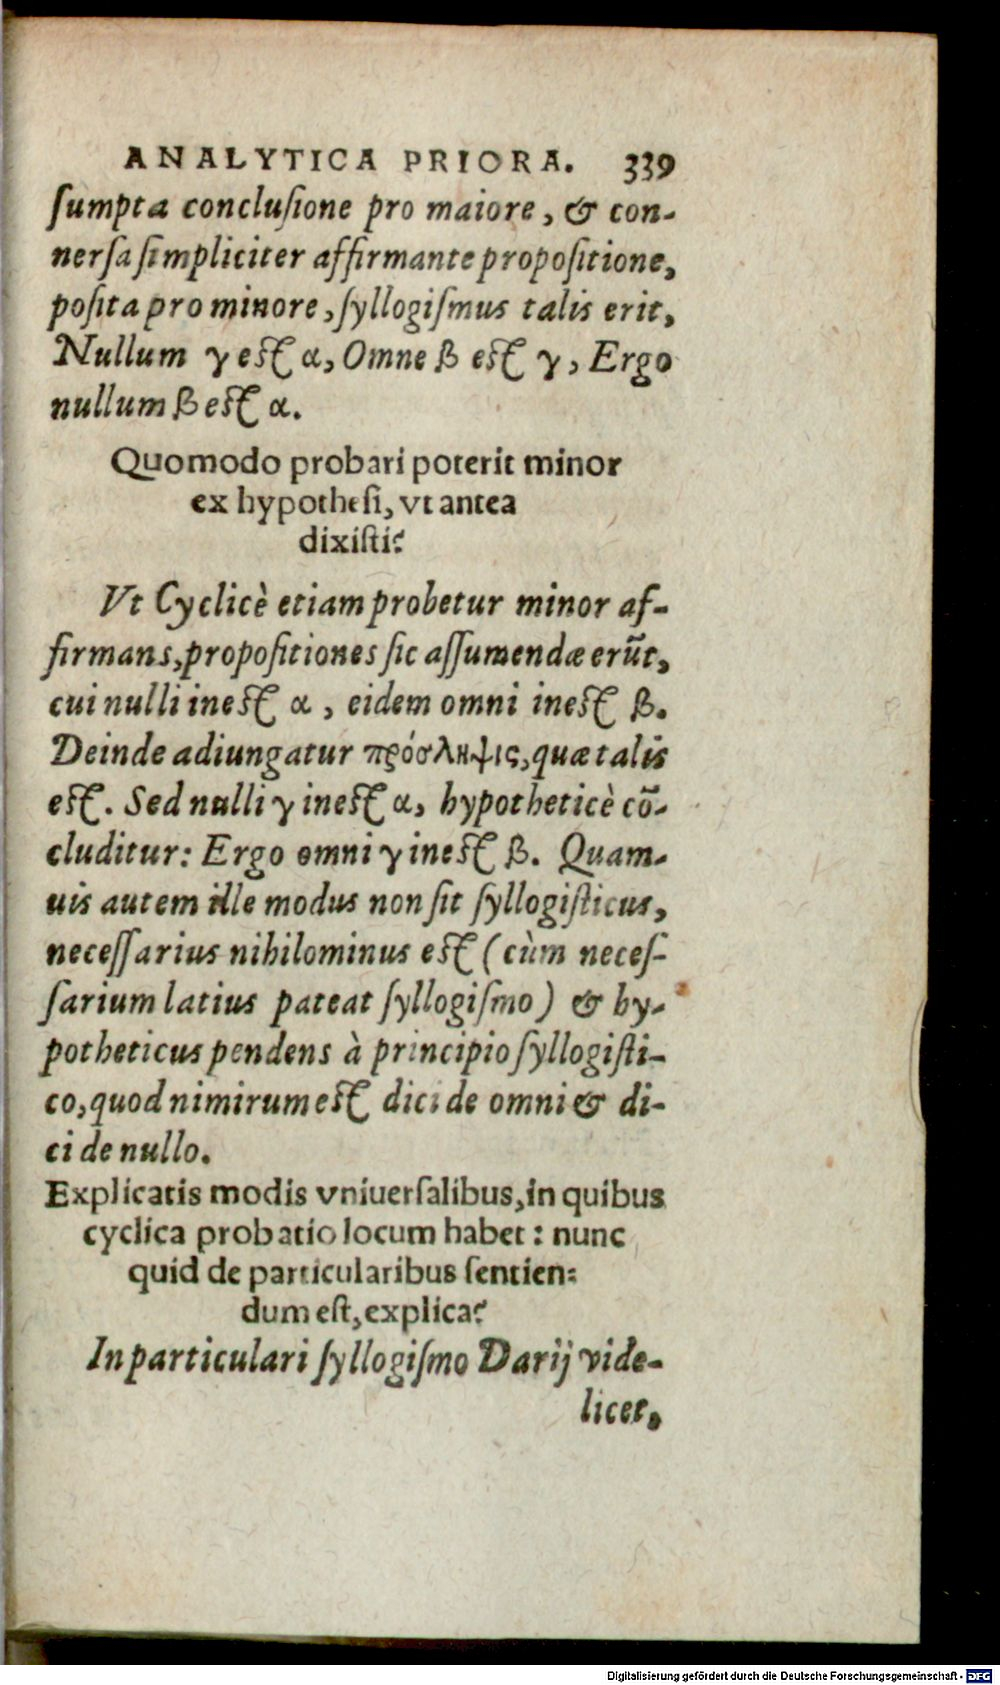 ANALYTICA PRIORA. 339
ſumpta concluſione pro maiore, & con-
nerſa ſimpliciter affirmante propoſitione,
poſita pro minore, ſyllogiſmus talis erit,
Nullum γ eſt α, Omne β eſt γ, Ergo
nullum β eſt α.
Quomodo probari poterit minor
ex hypotheſi, vt antea
dixiſti?
Vt Cyclicè etiam probetur minor af-
firmans, propoſitiones ſic aſſumendæ erūt,
cui nulli ineſt α, eidem omni ineſt β.
Deinde adiungatur πρόσληψις, quæ talis
eſt. Sed nulli γ ineſt α, hypotheticè cō-
cluditur: Ergo omni γ ineſt β. Quam-
uis autem ille modus non ſit ſyllogiſticus,
neceſſarius nihilominus eſt (cùm neceſ-
ſarium latius pateat ſyllogiſmo) & hy-
potheticus pendens à principio ſyllogiſti-
co, quod nimirum eſt dici de omni & di-
ci de nullo.
Explicatis modis vniuerſalibus, in quibus
cyclica probatio locum habet: nunc
quid de particularibus ſentien-
dum eſt, explica?
In particulari ſyllogiſmo Darij vide-
licet,
Digitalisierung gefördert durch die Deutsche Forschungsgemeinschaft - DFG